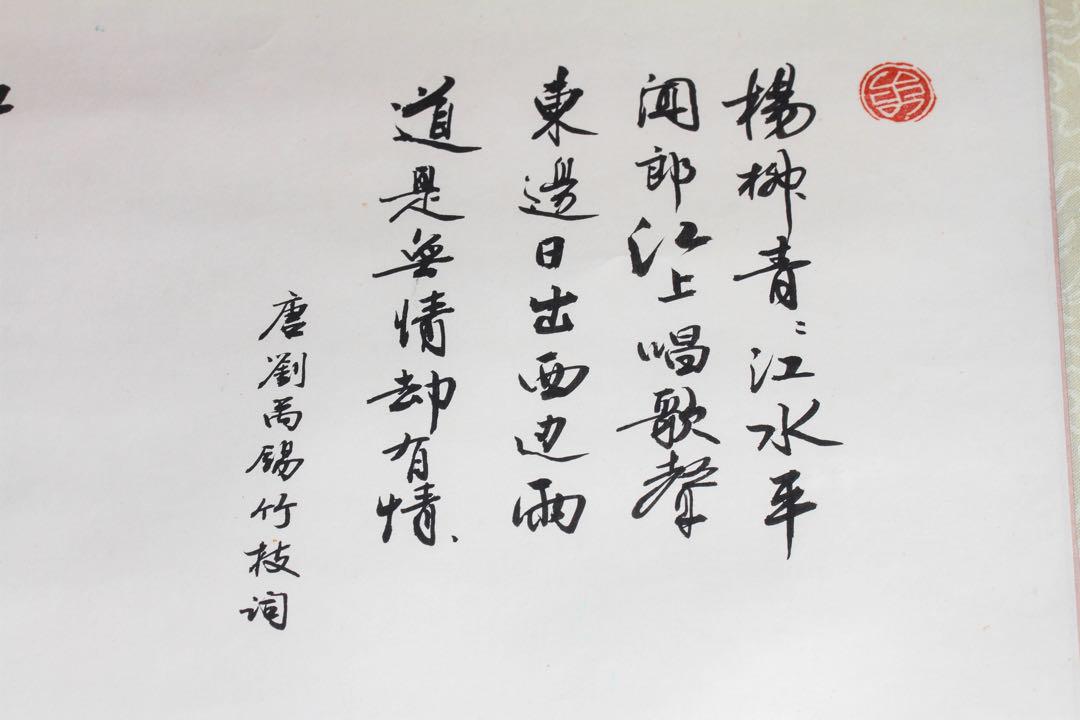 楊柳青〻江水平
聞郎江上唱歌聲
東邊日出西边雨
道是無情却有情、
唐劉禹錫竹枝詞